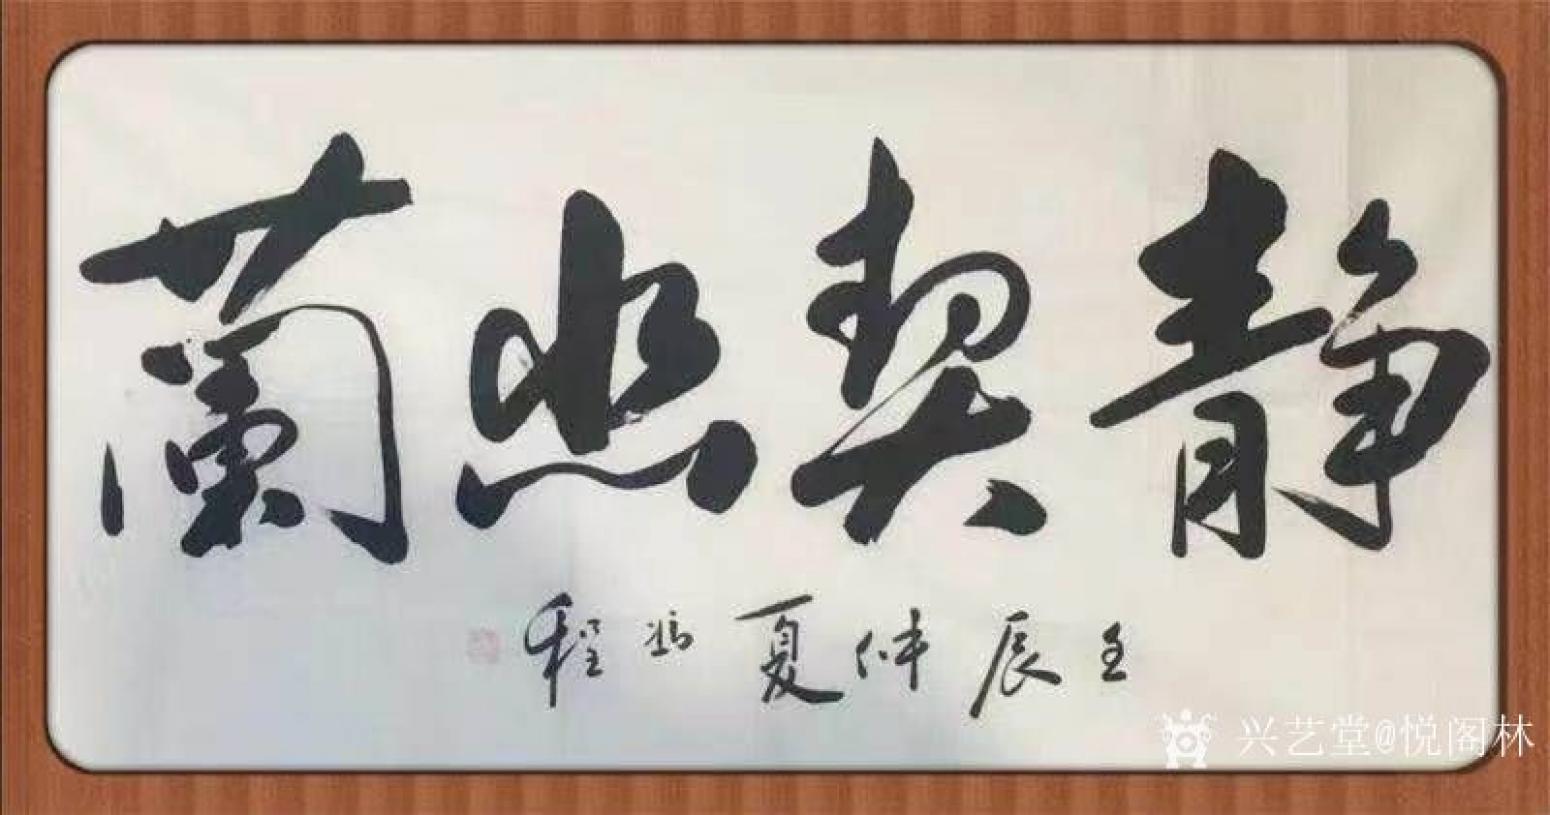 静契幽蘭
壬辰仲夏 程
兴艺堂@悦阁林